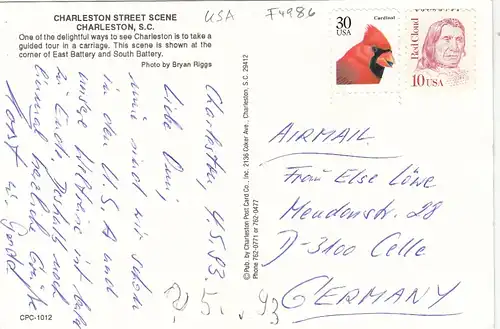 CHARLESTON STREET SCENE
CHARLESTON, S.C.
One of the delightful ways to see Charleston is to take a
guided tour in a carriage. This scene is shown at the
corner of East Battery and South Battery.
Photo by Bryan Riggs
USA
F4986
30
USA
Cardinal
Red Cloud
10 USA
© Pub. by Charleston Post Card Co., Inc. 2136 Coker Ave., Charleston, S.C. 29412
Phone 762-0771 or 762-0477
Charleston, 4.5.93.
Liebe Omi,
nun sind wir schon
in den U.S.A und
unsere Weltreise ist bald
zu Ende. Deshalb noch
einmal herzliche Grüße
Horst u. Gerda
2/5. 93
AIRMAIL
Frau Else Löwe
Mendenstr. 28
D-3100 Celle
GERMANY
CPC-1012